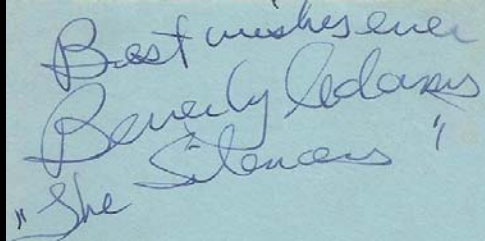 Best wishes ever
Beverly Adams
"The Silencers"